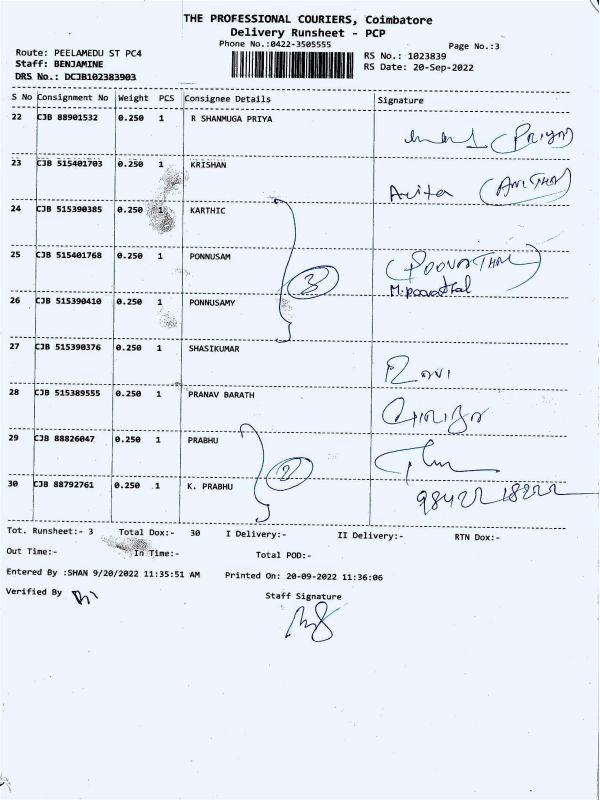 THE PROFESSIONAL COURIERS, Coimbatore
Delivery Runsheet - PCP
Phone No.:0422-3505555
Page No.:3
Route: PEELAMEDU ST PC4
Staff: BENJAMINE
DRS No.: DCJB102383903
RS No.: 1023839
RS Date: 20-Sep-2022
S No Consignment No Weight PCS Consignee Details Signature
22 CJB 88901532 0.250 1 R SHANMUGA PRIYA (PRIYA)
23 CJB 515401703 0.250 1 KRISHAN
24 CJB 515390385 0.250 1 KARTHIC
25 CJB 515401768 0.250 1 PONNUSAM (POOVATHAL)
3 M.poovathal
26 CJB 515390410 0.250 1 PONNUSAMY
27 CJB 515390376 0.250 1 SHASIKUMAR
28 CJB 515389555 0.250 1 PRANAV BARATH
29 CJB 88826047 0.250 1 PRABHU
2
30 CJB 88792761 0.250 1 K. PRABHU
Tot. Runsheet:- 3 Total Dox:- 30 I Delivery:- II Delivery:- RTN Dox:-
Out Time:- In Time:- Total POD:-
Entered By :SHAN 9/20/2022 11:35:51 AM Printed On: 20-09-2022 11:36:06
Verified By
Staff Signature